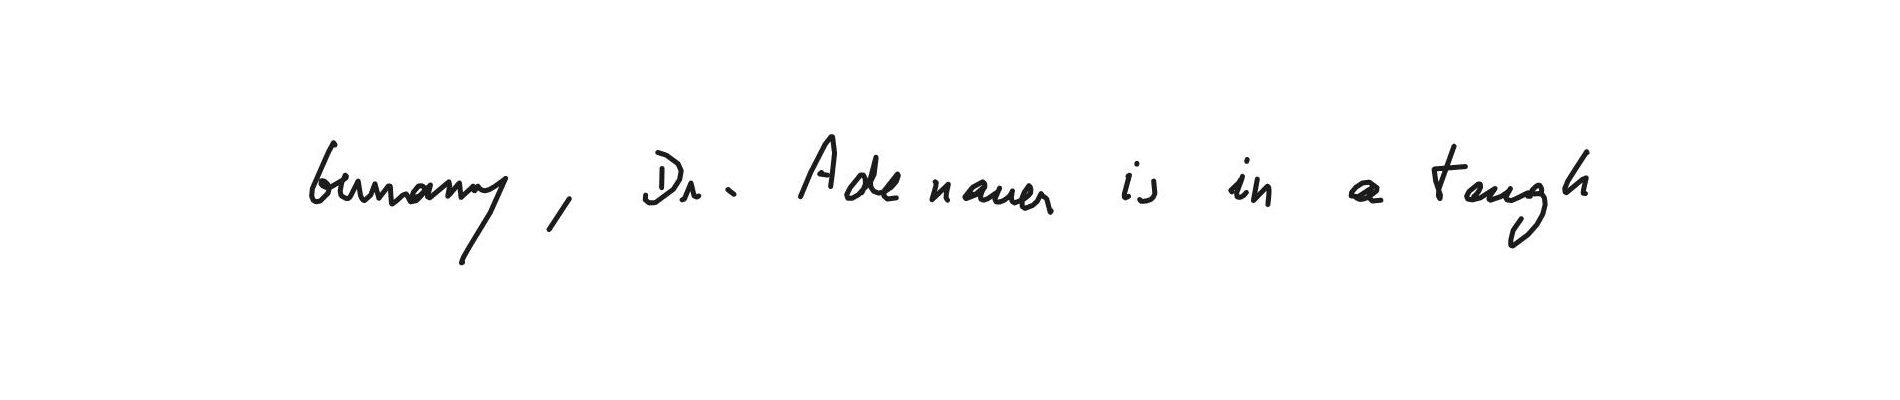 Germany, Dr. Adenauer is in a tough